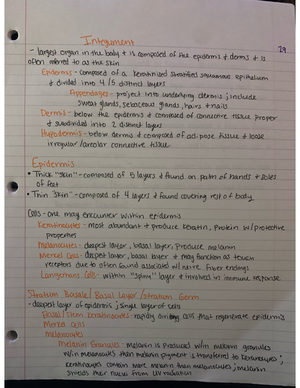 Integument
- largest organ in the body & is composed of the epidermis & dermis & is
often referred to as the skin
Epidermis - composed of a keratinized stratified squamous epithelium
& divided into 4/5 distinct layers
Appendages - project into underlying dermis; include
sweat glands, sebaceous glands, hairs & nails
Dermis - below the epidermis & composed of connective tissue proper
& subdivided into 2 distinct layers
Hypodermis - below dermis & composed of adipose tissue & loose
irregular/areolar connective tissue
Epidermis
• Thick "skin" - composed of 5 layers & found on palms of hands & soles
of feet
• Thin "skin" - composed of 4 layers & found covering rest of body
Cells - one may encounter within epidermis
Keratinocytes - most abundant & produce keratin, protein w/ protective
properties
Melanocytes - deepest layer, basal layer, produce melanin
Merkel Cells - deepest layer, basal layer & may function as touch
receptors due to often found associated w/ nerve fiber endings
Langerhans Cells - within "spiny" layer & involved in immune response
Stratum Basale/Basal Layer/Stratum Germ.
- deepest layer of epidermis; single layer of cells
Basal/Stem Keratinocytes - rapidly dividing cells that regenerate epidermis
Merkel Cells
Melanocytes
Melanin Granules - melanin is produced w/in melanin granules
w/in melanocytes then melanin pigment is transferred to keratinocytes;
keratinocytes contain more melanin than melanocytes; melanin
shields their nuclei from UV radiation